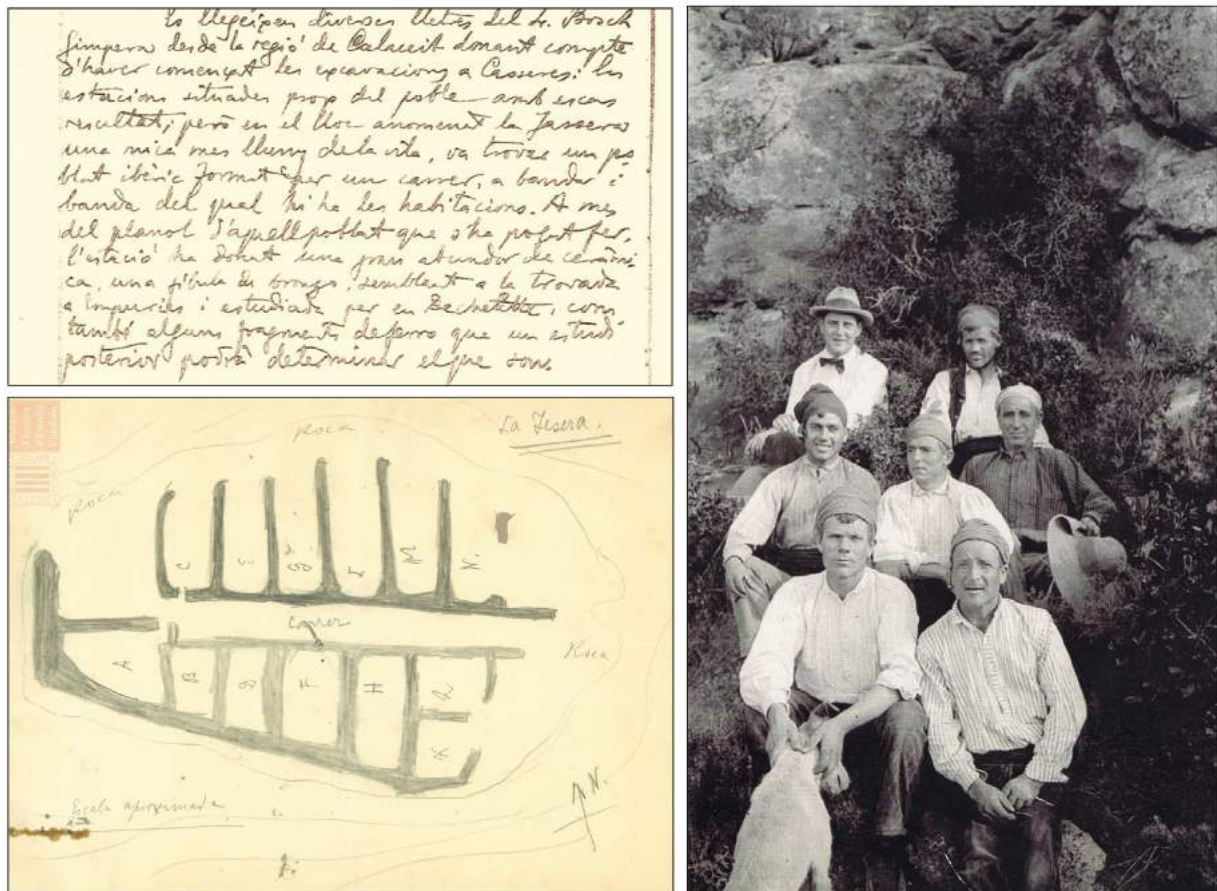 Es llegeixen diverses lletres del Sr. Bosch
Gimpera desde la regió de Calaceit donant compte
d'haver començat les excavacions a Casseres: les
estacions situades prop del poble amb escas
resultat; però en el lloc anomenat la Jassera
una mica mes lluny de la vila, va trovar un po
blat ibèric format per un carrer, a banda i
banda del qual hi ha les habitacions. A mes
del planol d'aquell poblat que s'ha pogut fer,
l'estació ha donat una gran abundor de ceràmi-
ca, una fibula de bronzo, semblant a la trovada
a Empuries i estudiada per en Dechelette, com
també alguns fragments de ferro que un estudi
posterior podrà determinar el que son.
La Tesera.
Roca
Roca
C
E
G
I
M
N
carrer
Roca
A
B
D
F
H
K
Escala aproximada
N.